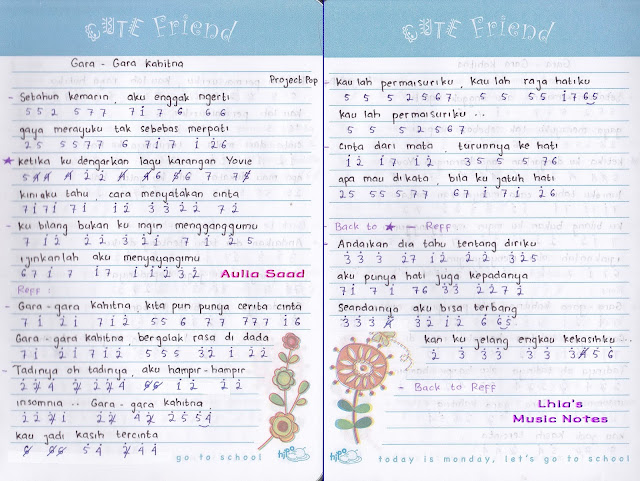 CUTE Friend
Gara - Gara Kahitna
Project Pop
- Setahun kemarin, aku enggak ngerti
5 5 2 5 7 7 7 i 7 6 6 6
gaya merayuku tak sebebas merpati
2 5 5 5 7 7 6 7 i 7 i 2 6
★ ketika ku dengarkan lagu karangan Yovie
kini aku tahu, cara menyatakan cinta
7 i 7 i 7 i i 2 3 3 2 2 7 2
- ku bilang bukan ku ingin mengganggumu
7 i 2 2 2 3 2 i 7 i 2 2 5
ijinkanlah aku menyayangimu
6 7 i 7 i 7 i i 2 3 2
Aulia Saad
Reff :
- Gara-gara kahitna, kita pun punya cerita cinta
7 i 2 i 7 i 2 5 5 6 7 7 7 7 7 i 6
Gara-gara kahitna, bergolak rasa di dada
7 i 2 i 7 i 2 5 5 5 3 2 i 2 2
- Tadinya oh tadinya, aku hampir-hampir
insomnia .. Gara-gara kahitna
kau jadi kasih tercinta
hipo
go to school
CUTE Friend
- kau lah permaisuriku, kau lah raja hatiku
5 5 5 2 5 6 7 5 5 5 5 i 7 6 5
kau lah permaisuriku ...
5 5 5 2 5 6 7
- cinta dari mata, turunnya ke hati
i 2 i 7 i 2 3 5 5 5 7 6
apa mau dikata, bila ku jatuh hati
2 5 5 5 7 7 6 7 i 7 i 2 6
- Back to ★ - Reff
- Andaikan dia tahu tentang diriku
3 3 3 2 7 i 2 2 2 3 2 5
aku punya hati juga kepadanya
7 i 7 i 7 6 3 3 2 2 7 2
Seandainya aku bisa terbang
kan ku jelang engkau kekasihku ...
- Back to Reff
Lhia's
Music Notes
hipo
today is monday, let's go to school